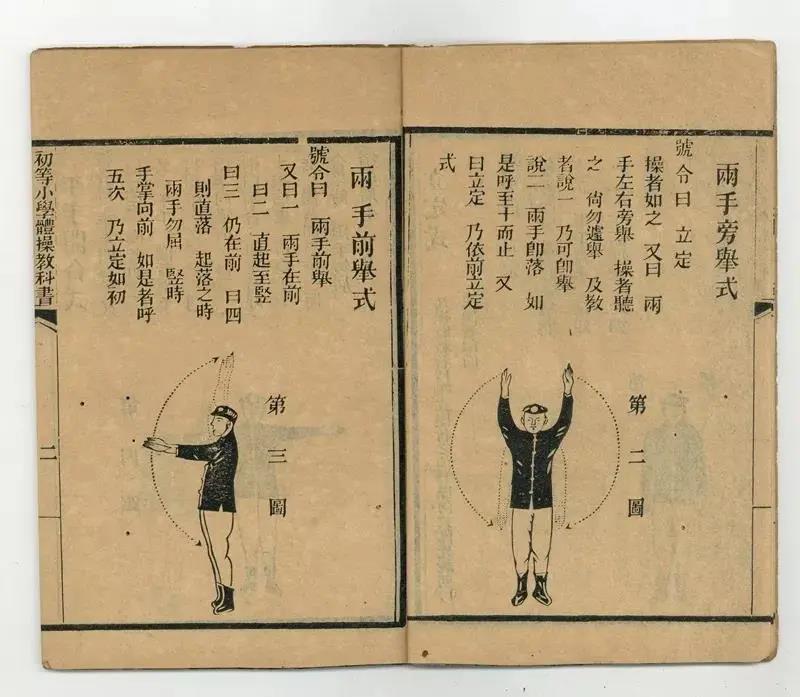 兩手旁舉式
號令曰 立定
操者如之 又曰 兩
手左右旁舉 操者聽
之 尙勿遽舉 及敎
者說一 乃可卽舉
說二 兩手卽落 如
是呼至十而止 又
曰立定 乃依前立定
式
第二圖
兩手前舉式
號令曰 兩手前舉
又曰一 兩手在前
曰二 直起至竪
曰三 仍在前 曰四
則直落 起落之時
兩手勿屈 竪時
手掌向前 如是者呼
五次 乃立定如初
第三圖
初等小學體操敎科書
二